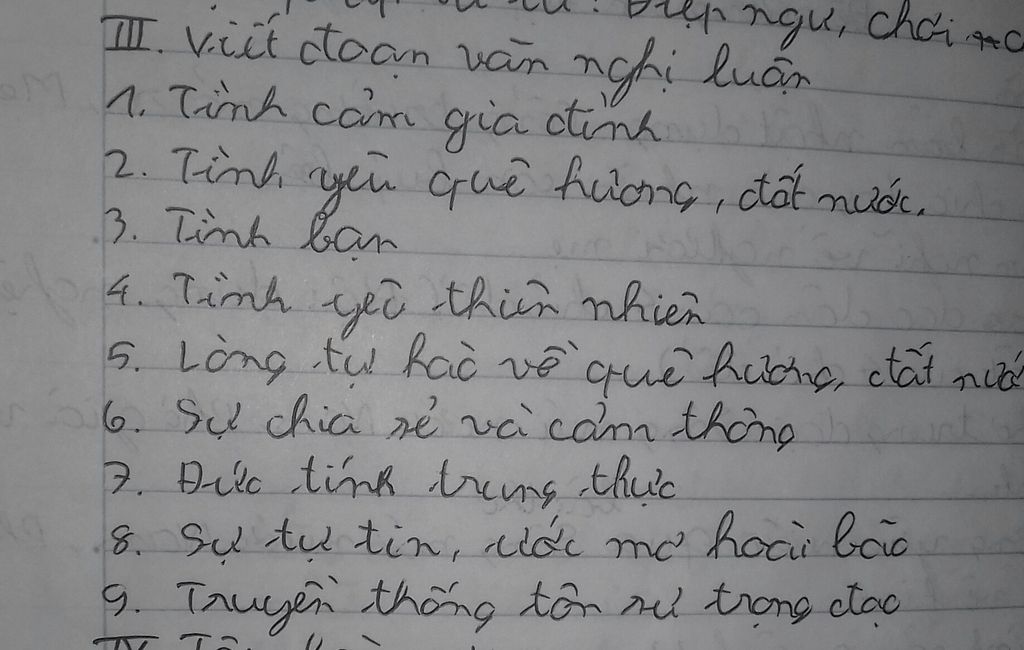 Điệp ngữ, chơi
III. Viết đoạn văn nghị luận
1. Tình cảm gia đình
2. Tình yêu quê hương, đất nước.
3. Tình bạn
4. Tình yêu thiên nhiên
5. Lòng tự hào về quê hương, đất nướ
6. Sự chia sẻ và cảm thông
7. Đức tính trung thực
8. Sự tự tin, ước mơ hoài bão
9. Truyền thống tôn sư trọng đạo
IV